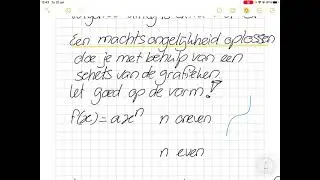 Een machtsongelijkheid oplossen
doe je met behulp van een
schets van de grafieken
let goed op de vorm!
f(x) = axⁿ n oneven
n even